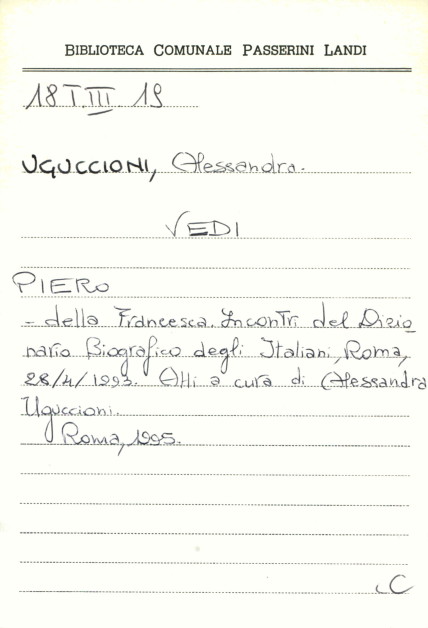 BIBLIOTECA COMUNALE PASSERINI LANDI
18 T.III. 19
UGUCCIONI, Alessandra.
VEDI
PIERO
- della Francesca. Incontri del Dizio
nario Biografico degli Italiani, Roma,
28/4/1993. Atti a cura di Alessandra
Uguccioni.
Roma, 1995.
C